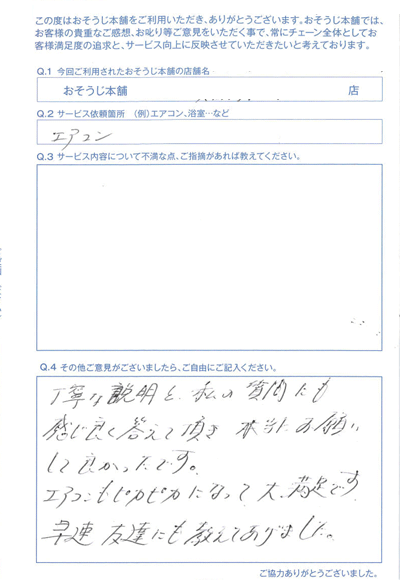 この度はおそうじ本舗をご利用いただき、ありがとうございます。おそうじ本舗では、
お客様の貴重なご感想、お叱り等ご意見をいただく事で、常にチェーン全体としてお
客様満足度の追求と、サービス向上に反映させていただきたいと考えております。
Q.1 今回ご利用されたおそうじ本舗の店舗名
おそうじ本舗 店
Q.2 サービス依頼箇所 (例)エアコン、浴室…など
エアコン
Q.3 サービス内容について不満な点、ご指摘があれば教えてください。
Q.4 その他ご意見がございましたら、ご自由にご記入ください。
丁寧な説明と、私の質問にも
感じ良く答えて頂き 本当にお願い
して良かったです。
エアコンもピカピカになって大満足です
早速 友達にも教えてあげました。
ご協力ありがとうございました。